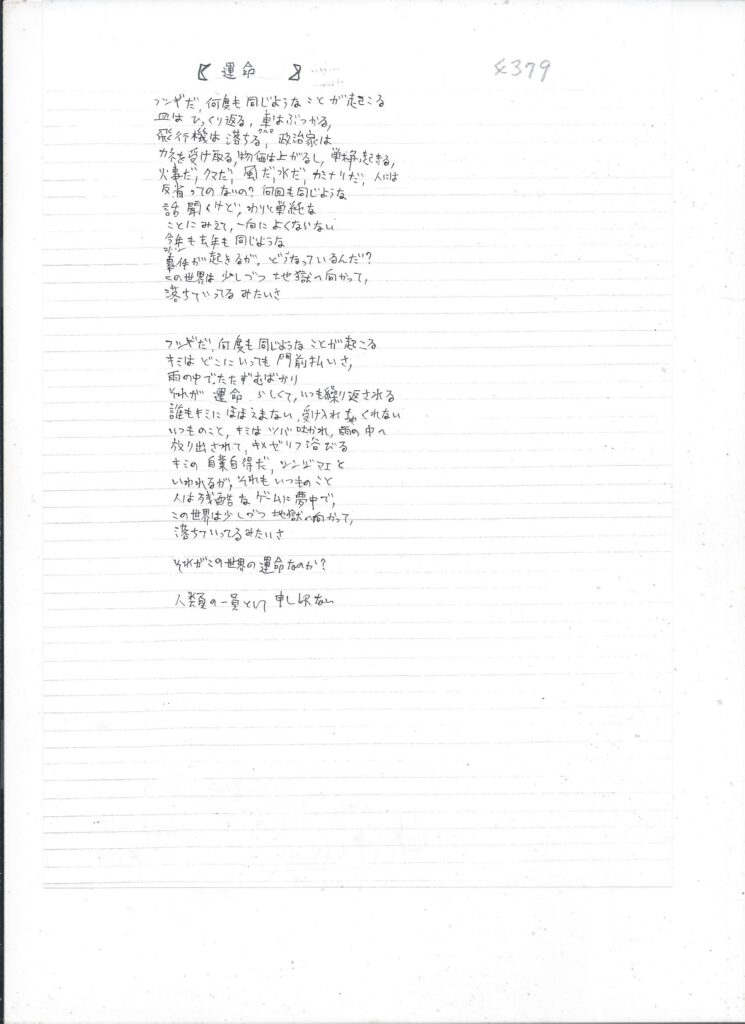 【 運命 】
4379
フシギだ、何度も同じようなことが起こる
皿はひっくり返る、車はぶつかる、
飛行機は落ちる、政治家は
カネを受け取る、物価は上がるし、戦争起きる、
火事だ、クマだ、風だ、水だ、カミナリだ、人には
反省ってのないの？何回も同じような
話聞くけど、わりと単純な
ことにみえて、一向によくならない
今年も去年も同じような
事件が起きるが、どうなっているんだ？
この世界は少しづつ地獄へ向かって、
落ちていってるみたいさ
フシギだ、何度も同じようなことが起こる
キミはどこにいっても門前払いさ、
雨の中でたたずむばかり
それが運命らしくて、いつも繰り返される
誰もキミにほほえまない、受け入れちゃくれない
いつものこと、キミはツバ吐かれ、雨の中へ
放り出されて、キメゼリフ浴びる
キミの自業自得だ、シンジマエと
いわれるが、それもいつものこと
人は残酷なゲームに夢中で、
この世界は少しづつ地獄へ向かって、
落ちていってるみたいさ
それがこの世界の運命なのか？
人類の一員として申し訳ない